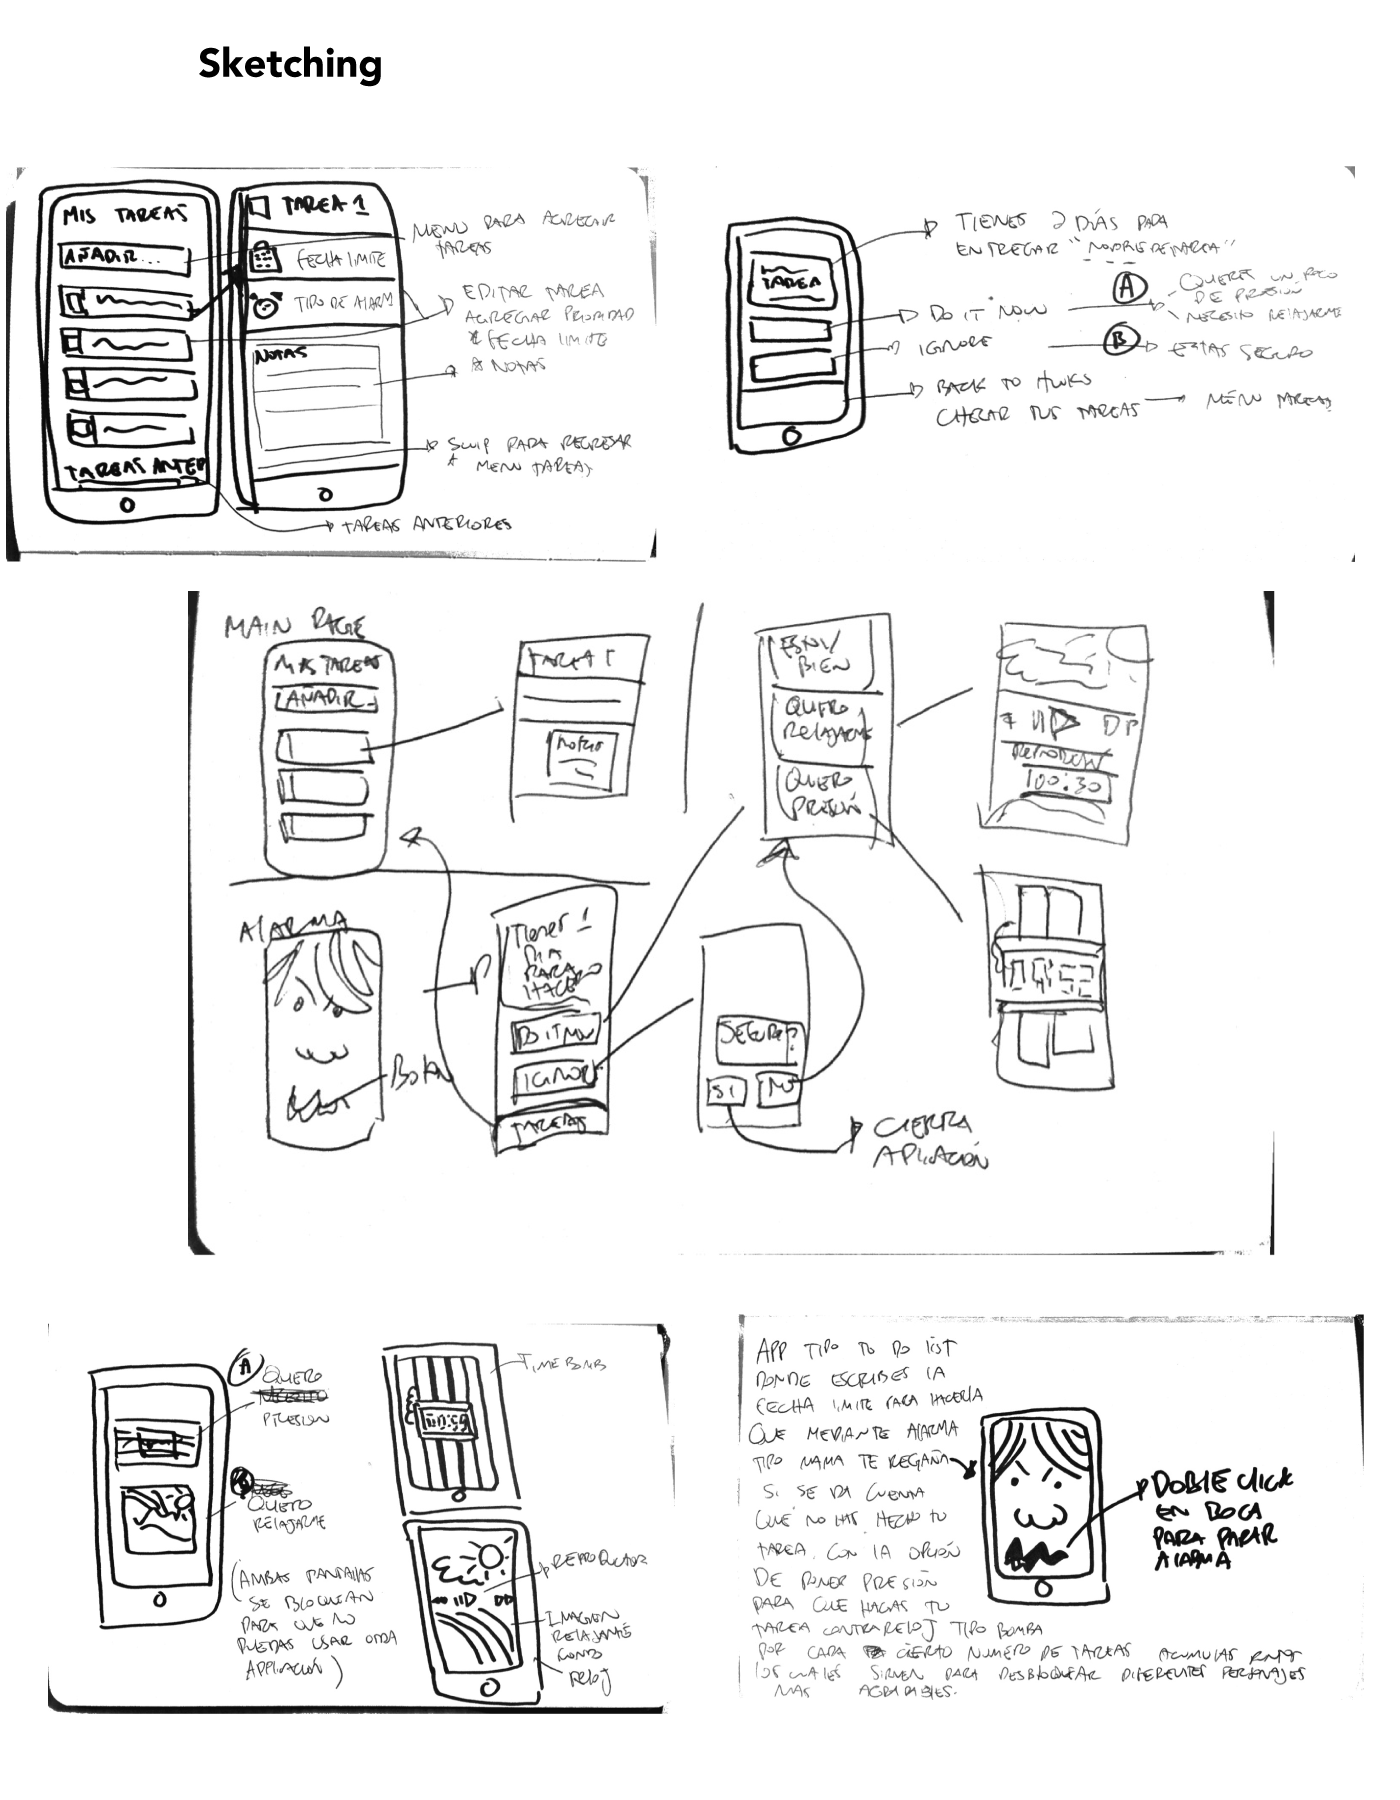 Sketching
MIS TAREAS
AÑADIR...
TAREAS ANTER
TAREA 1
FECHA LIMITE
TIPO DE ALARM
NOTAS
MENU PARA AGREGAR
TAREAS
EDITAR TAREA
AGREGAR PRIORIDAD
* FECHA LIMITE
* NOTAS
SWIP PARA REGRESAR
A MENU TAREAS
TAREAS ANTERIORES
TAREA
TIENES 2 DÍAS PARA
ENTREGAR "NOMBRE DE TAREA"
DO IT NOW
A
QUERES UN POCO
DE PRESIÓN
NECESITO RELAJARME
IGNORE
B
ESTAS SEGURO
BACK TO
CHECAR TUS TAREAS
MENU TAREAS
MAIN PAGE
MIS TAREAS
AÑADIR
TAREA 1
NOTAS
BIEN
QUIERO
RELAJARME
QUIERO
PRESIÓN
REPRODUCTOR
00:30
ALARMA
Boton
Tienes 1
DIA
PARA
HACER
DO IT NOW
IGNORE
TAREAS
SEGURO?
SI
NO
CIERRA
APLICACIÓN
04:52
A
QUIERO
PRESION
QUIERO
RELAJARME
(AMBAS PANTALLAS
SE BLOQUEAN
PARA QUE NO
PUEDAS USAR OTRA
APPLICACIÓN)
TIME BOMB
00:59
REPRODUCTOR
IMAGEN
RELAJANTE
FONDO
RELOJ
APP TIPO TO DO LIST
DONDE ESCRIBES LA
FECHA LIMITE PARA HACERLA
QUE MEDIANTE ALARMA
TIPO MAMA TE REGAÑA
SI SE DA CUENTA
QUE NO HAS HECHO TU
TAREA. CON LA OPCIÓN
DE PONER PRESIÓN
PARA QUE HAGAS TU
TAREA CONTRARELOJ TIPO BOMBA
POR CADA CIERTO NUMERO DE TAREAS ACUMULAS
LOS CUALES SIRVEN PARA DESBLOQUEAR DIFERENTES PERSONAJES
MAS AGRADABLES.
DOBLE CLICK
EN BOCA
PARA PARAR
ALARMA